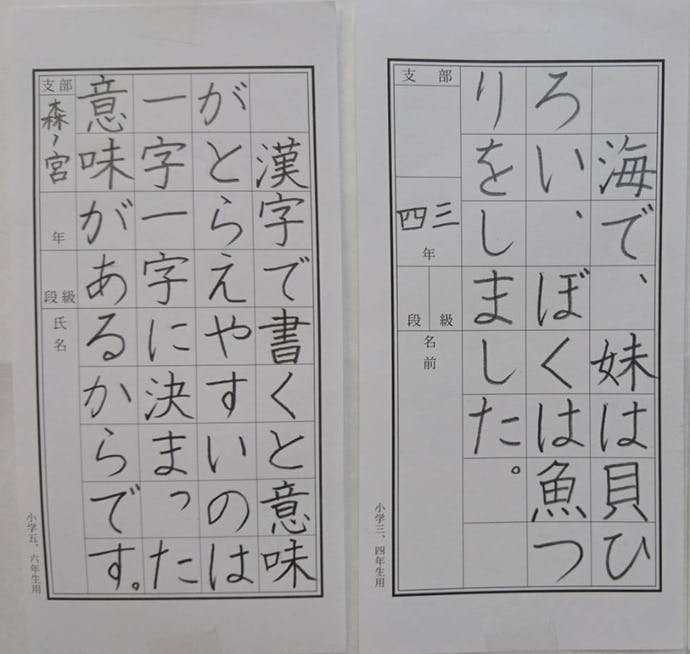 海で、妹は貝ひ
ろい、ぼくは魚つ
りをしました。
支部
四三年
段級
名前
小学三、四年生用
漢字で書くと意味
がとらえやすいのは
一字一字に決まった
意味があるからです。
支部
森ノ宮
年
段級
氏名
小学五、六年生用